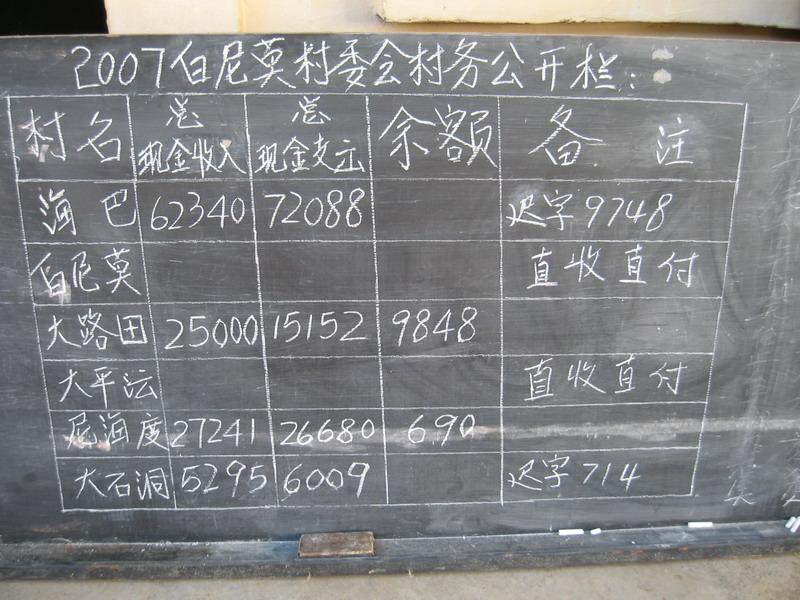 2007白尼莫村委会村务公开栏:
村名 总现金收入 总现金支示 余额 备注
海巴 62340 72088 迟字9748
白尼莫 直收直付
大路田 25000 15152 9848
大平沄 直收直付
尼海度 27241 26680 690
大石洞 5295 6009 迟字714